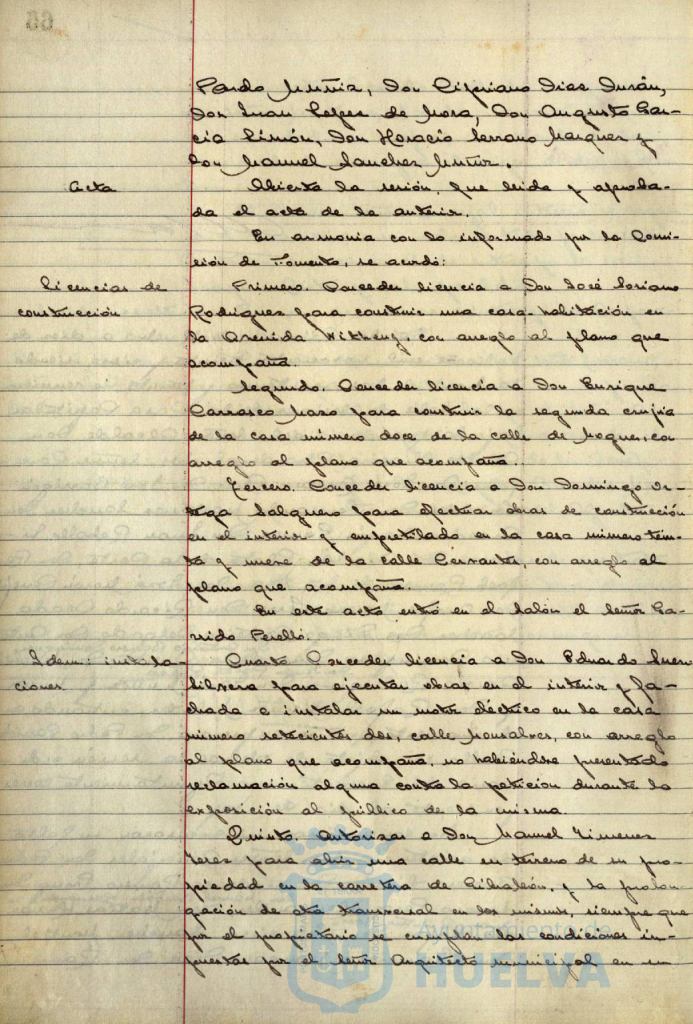 Pardo Muñiz, Don Cipriano Dias Durán,
Don Juan Lopez de Mora, Don Augusto Gar-
cia Limón, Don Horacio Serrano Marquez y
Don Manuel Sanchez Muñiz.
Acta
Abierta la sesión, fue leida y aproba-
da el acta de la anterior.
En armonia con lo informado por la Comi-
sión de Fomento, se acordó:
Licencias de
construcción
Primero. Conceder licencia a Don José Soriano
Rodriguez para construir una casa-habitación en
la Avenida, con arreglo al plano que
acompaña.
Segundo. Conceder licencia a Don Enrique
Carrasco para construir la segunda crujia
de la casa número doce de la calle de Moguer, con
arreglo al plano que acompaña.
Tercero. Conceder licencia a Don Domingo Or-
tega Salguero para efectuar obras de construcción
en el interior y empretilado en la casa número trein-
ta y nueve de la calle Cervantes, con arreglo al
plano que acompaña.
En este acto entró en el Salón el Señor Ga-
rrido Perelló.
Idem: instala-
ciones
Cuarto. Conceder licencia a Don Eduardo
para ejecutar obras en el interior y fa-
chada e instalar un motor eléctrico en la casa
número setecientos dos, calle, con arreglo
al plano que acompaña, no habiéndose presentado
reclamación alguna contra la petición durante la
exposición al público de la misma.
Quinto. Autorizar a Don Manuel Jimenez
Jerez para abrir una calle en terreno de su pro-
piedad en la carretera de Gibraleón, y la prolon-
gación de otra transversal en los mismos, siempre que
por el propietario se cumplan las condiciones im-
puestas por el Señor Arquitecto municipal en su
Ayuntamiento de
HUELVA